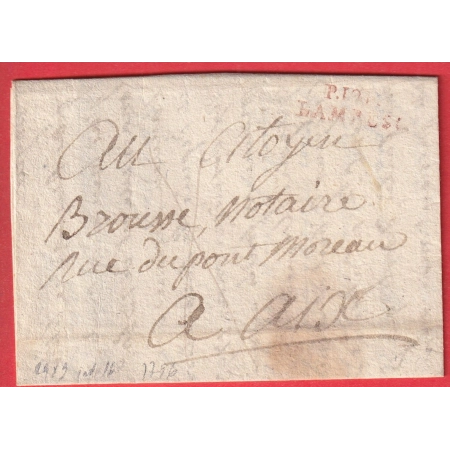 P.12.
LAMBESC
Au Citoyen
Brousse, Notaire
Rue du pont Moreau
A Aix